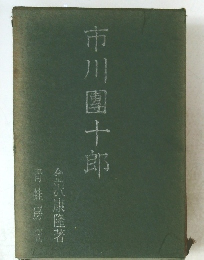 市川團十郎
金沢康隆著
青蛙房